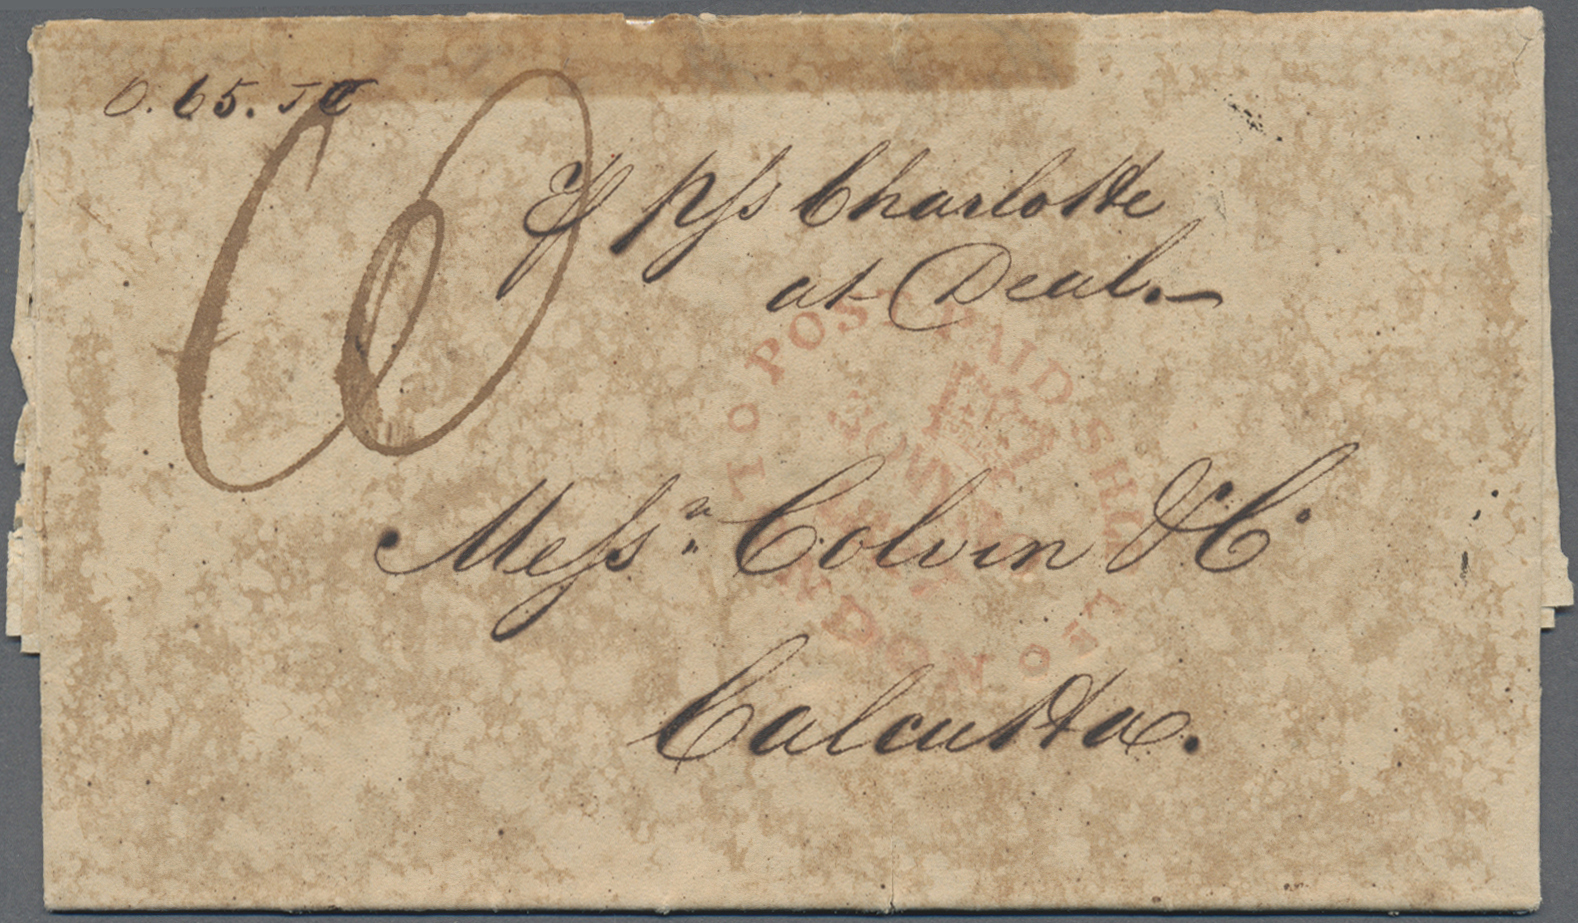 O. 65.
6
℔ p/s Charlotte
at Deal.
POST PAID SHIP L
LONDON
Messrs: Colvin & C
Calcutta.